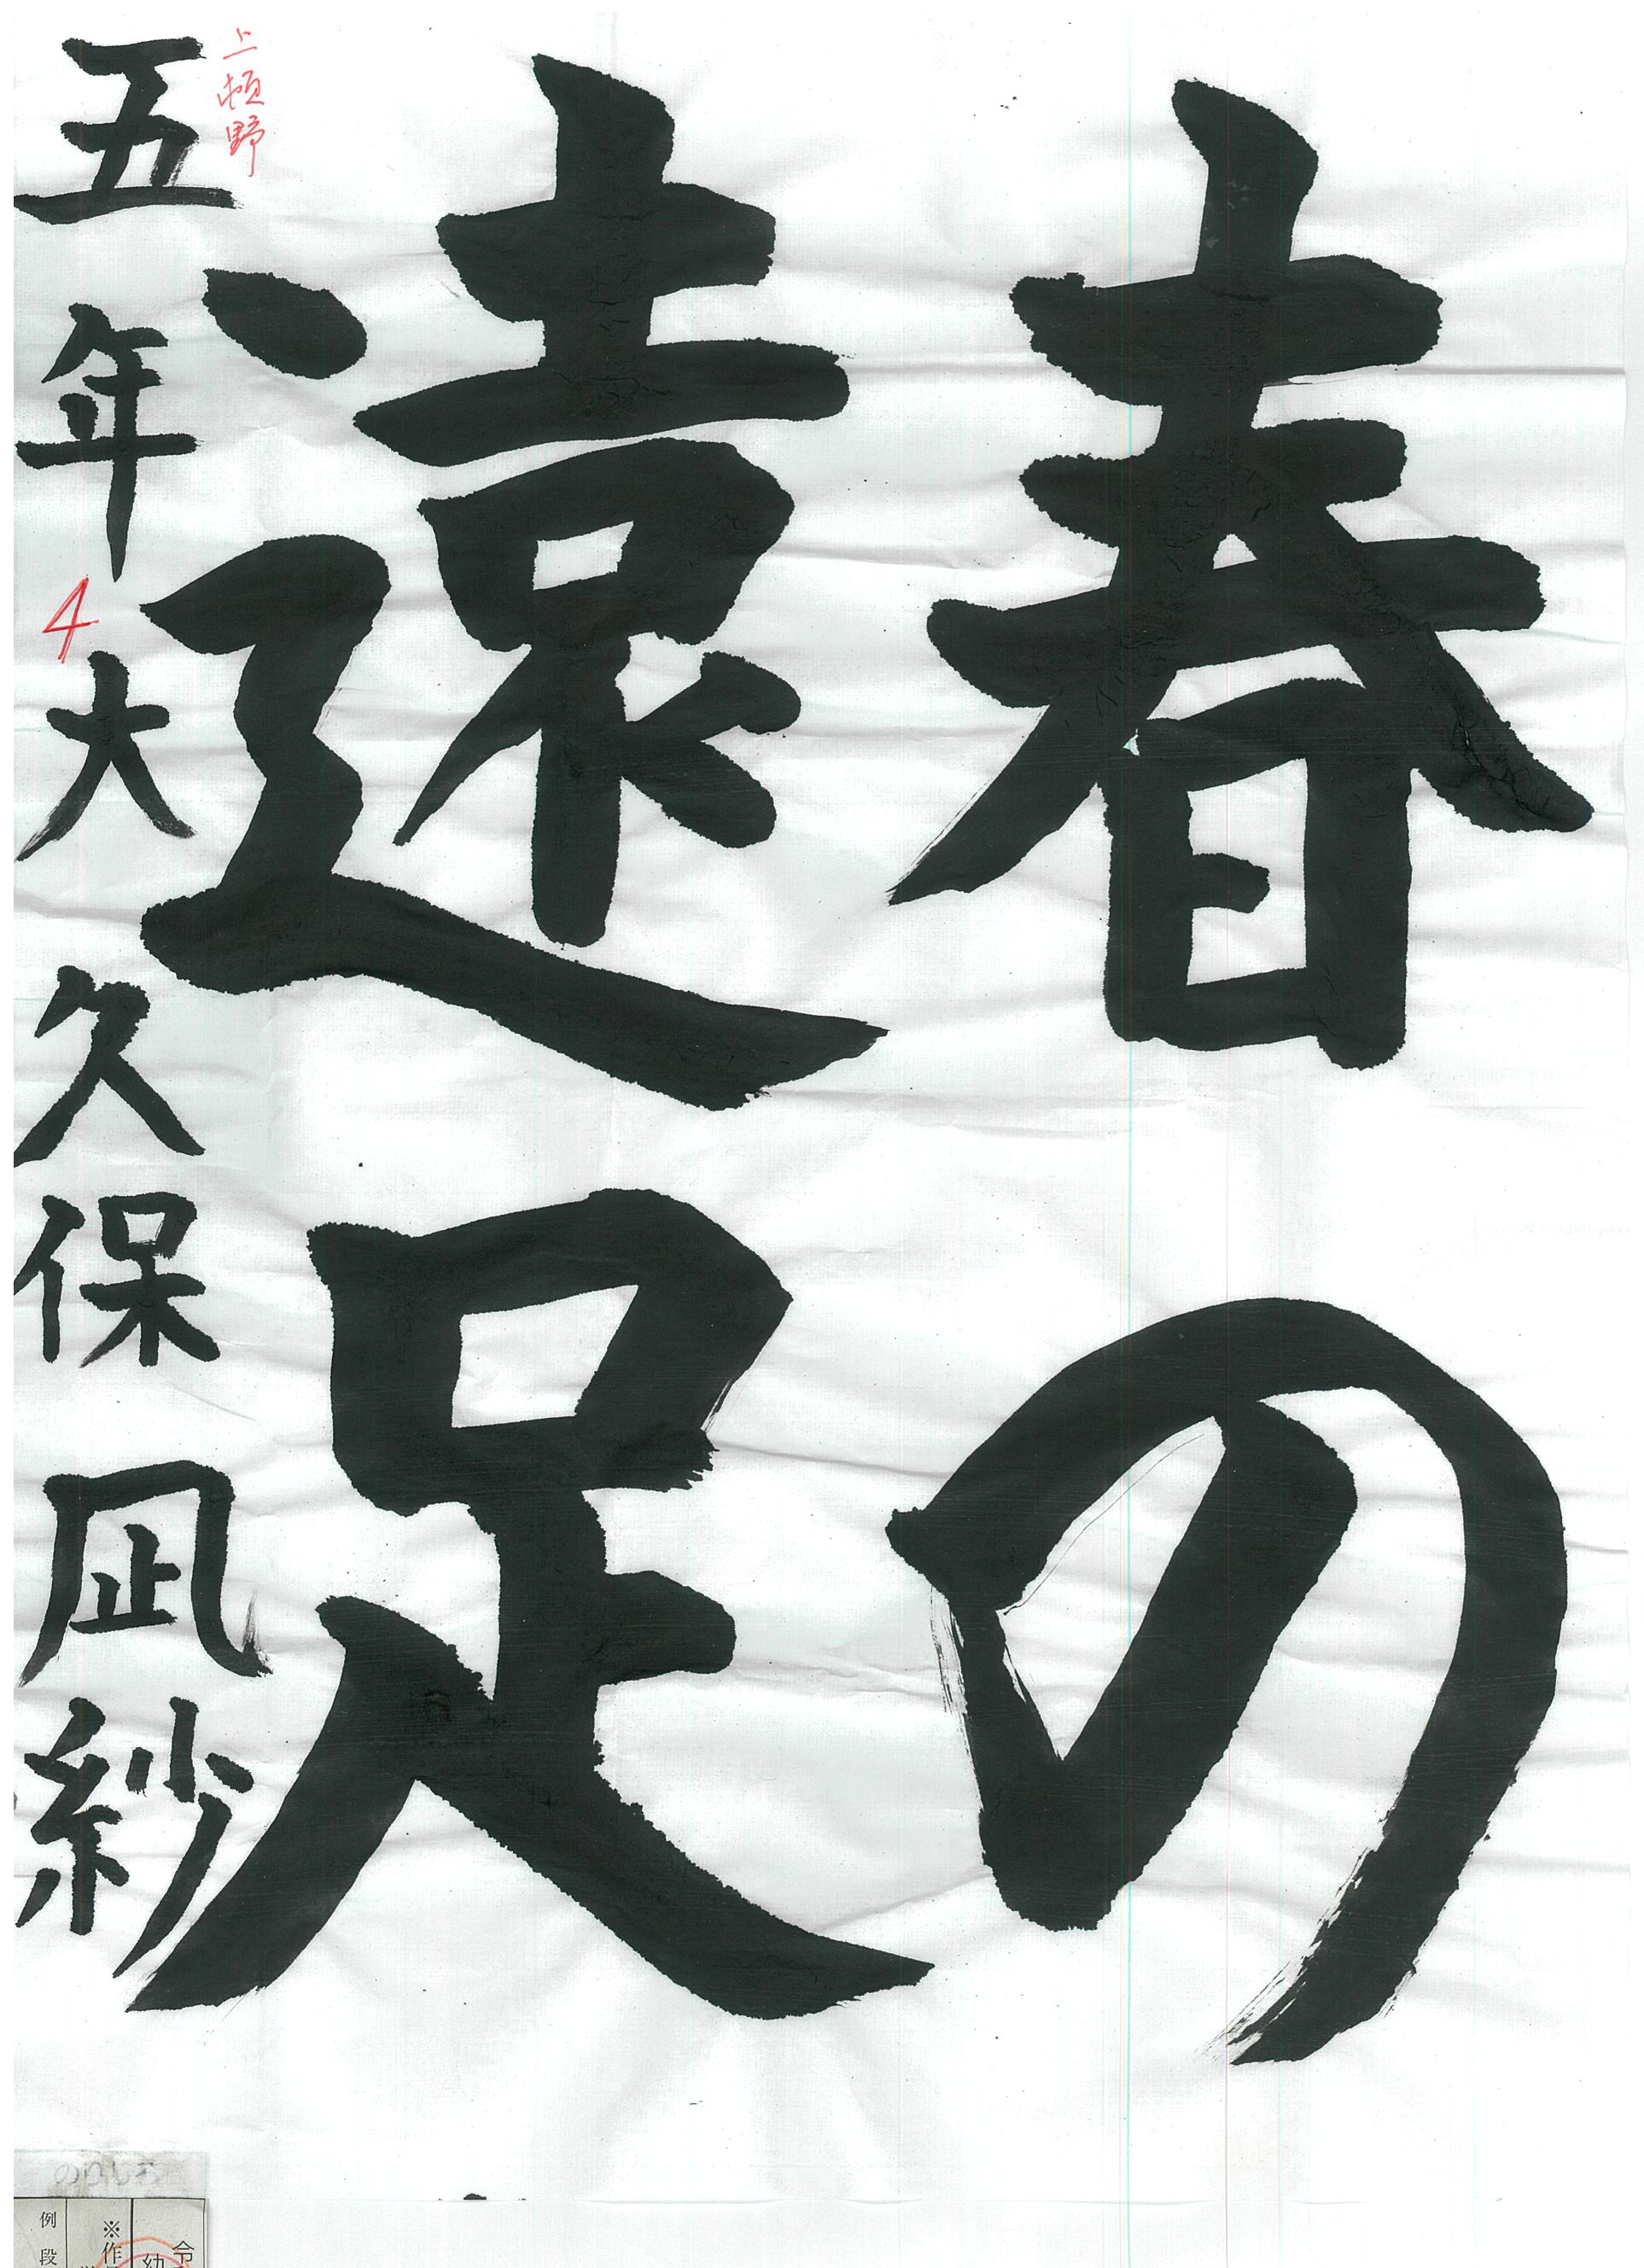 春の
遠足
上頓野
五年 大久保 凪紗
4
令
幼
※作
例 段